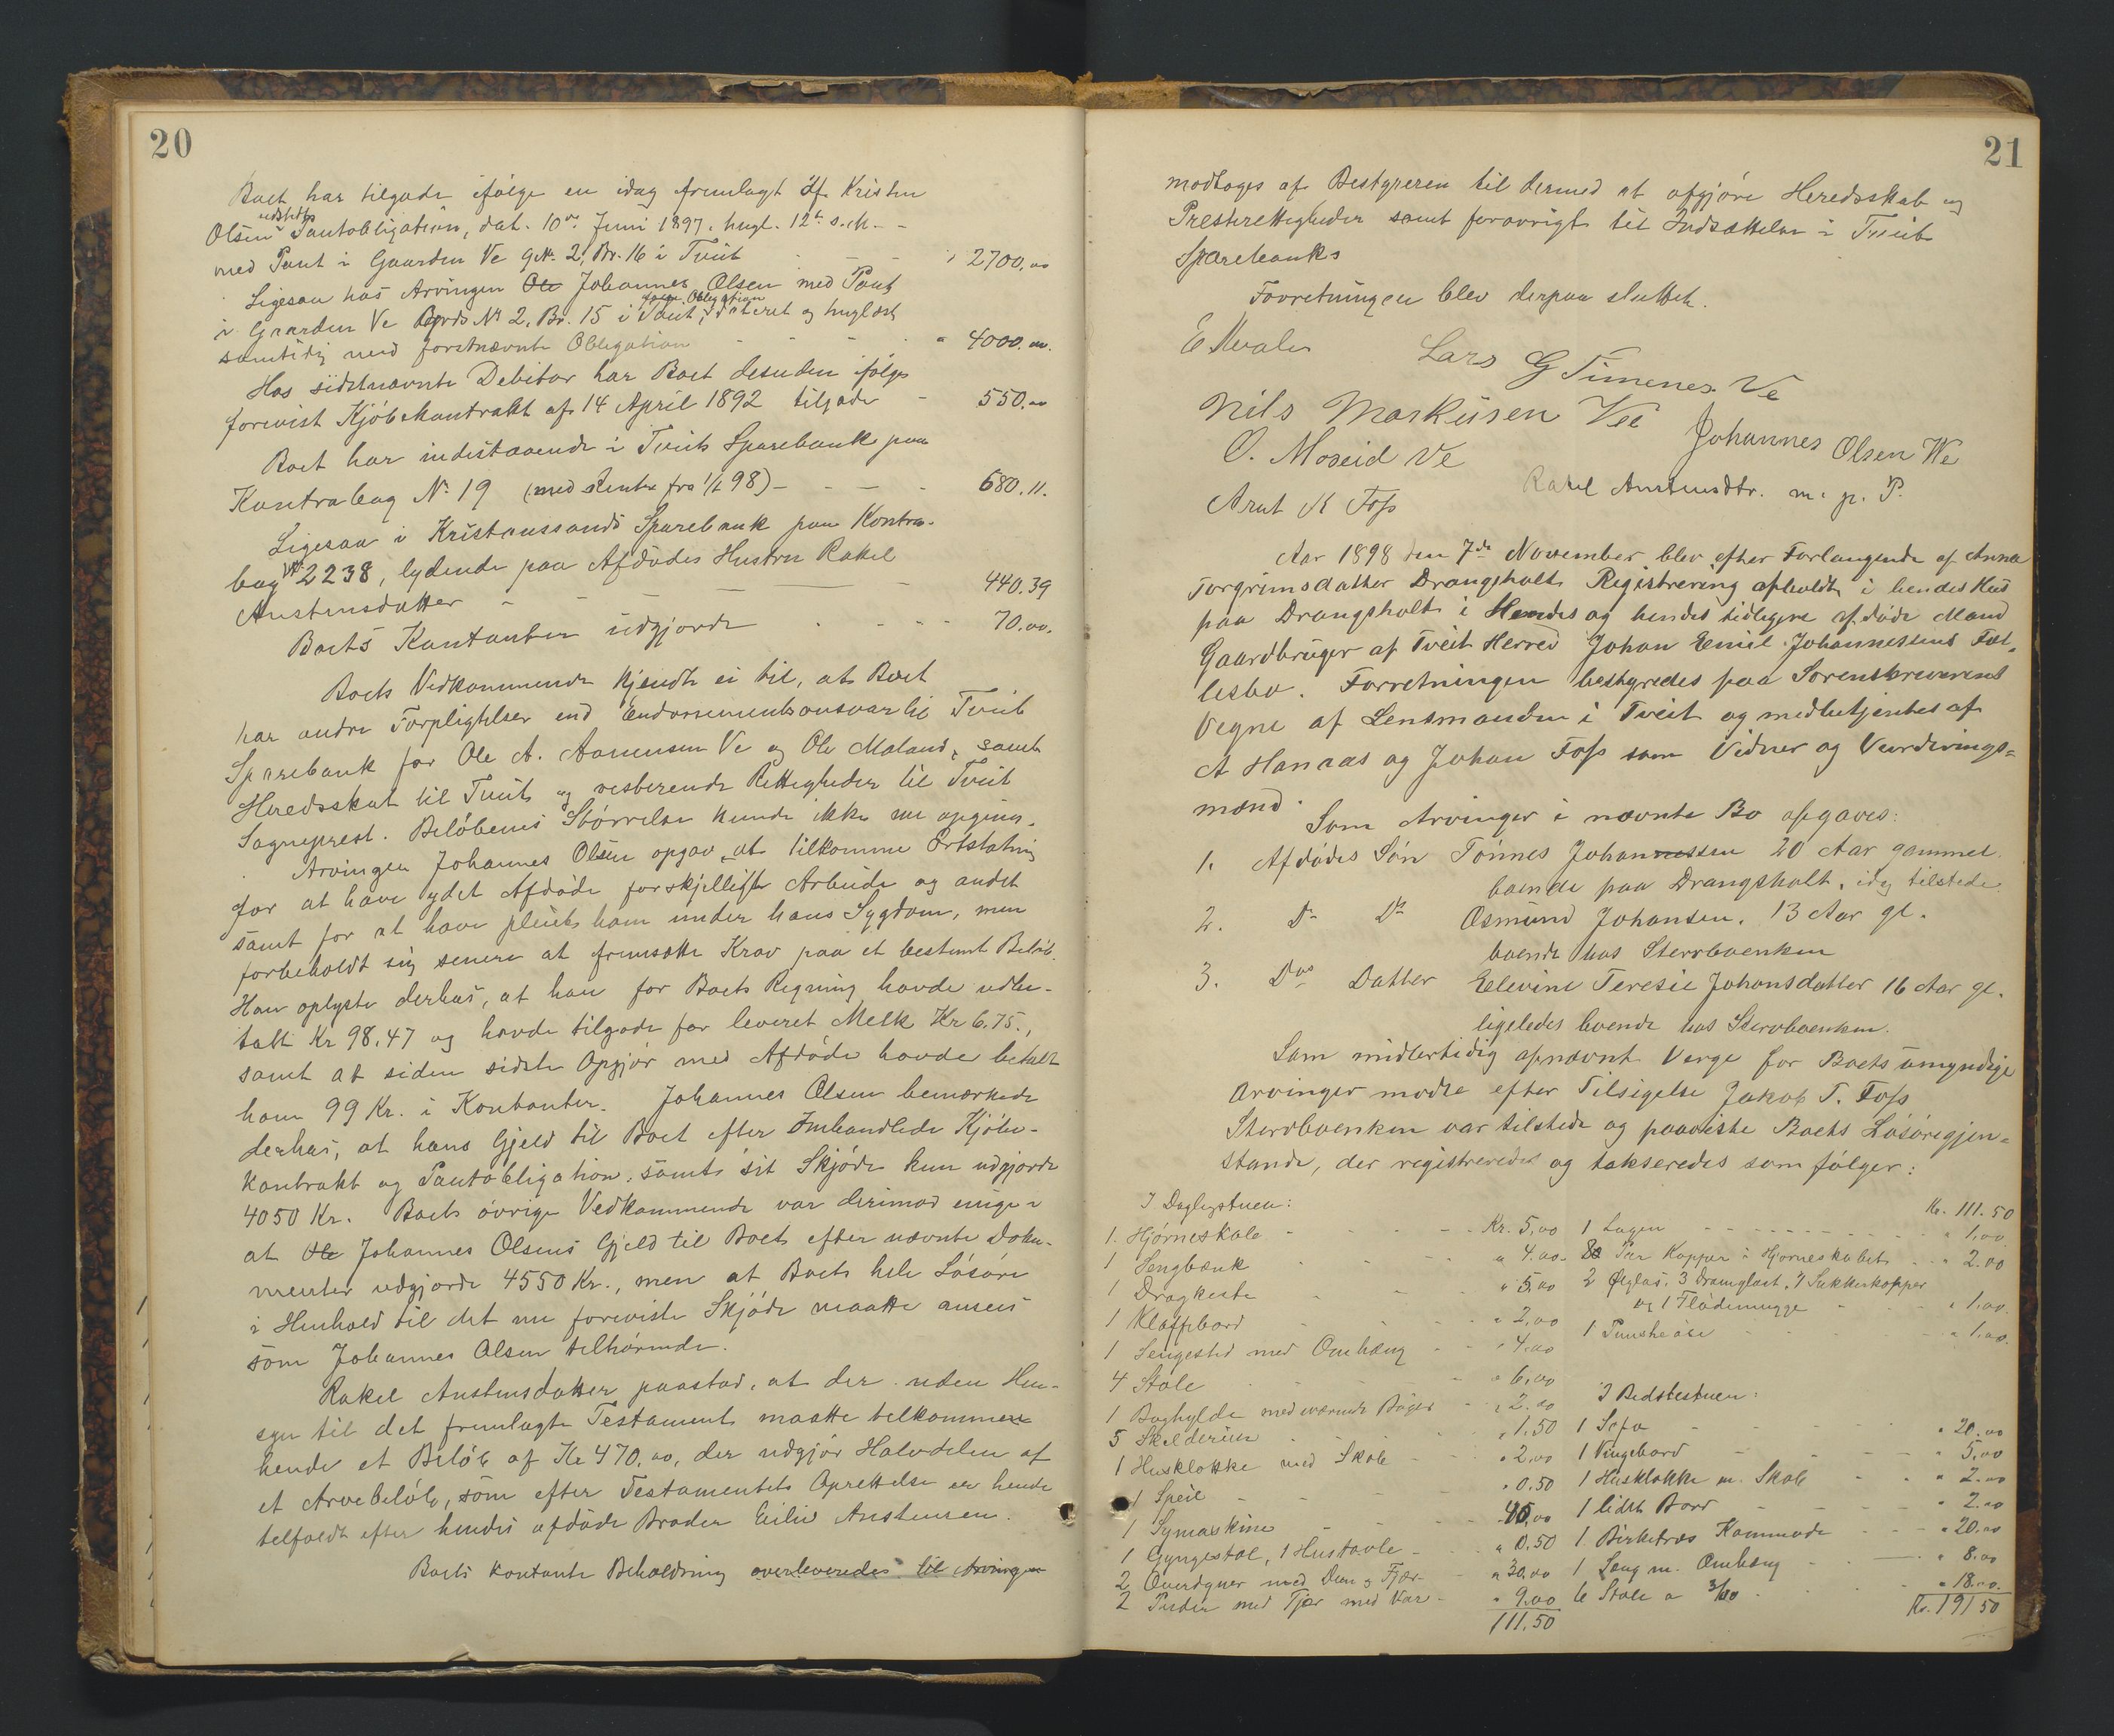 20
Boet har tilgode ifølge en idag fremlagt af Kristen
udstedt
Olsen Pantobligation, dat. 10de Juni 1897, tingl. 12te s. M. -
med Pant i Gaarden Ve gNo. 2, Br. 16 i Tveit 2700.00
Ligesaa hos Arvingen Ole Johannes Olsen med Pant
Obligation
i Gaarden Ve Gaards No 2, Br. 15 i Tveit, dateret og tinglæst
samtidig med førstnævnte Obligation " 4000.00.
Hos sidstnævnte Debitor har Boet desuden ifølge
forevist Kjøbekontrakt af 14 April 1892 tilgode - 550.00
Boet har indestaaende i Tveits Sparebank paa
Kontrabog No. 19 (med Renter fra 1/1 98) - - - - 680.11.
Ligesaa i Kristianssands Sparebank paa Kontra-
bog No 2238, lydende paa Afdødes Hustru Rakel
Austensdatter - - - 440.39
Boets Kontanter udgjorde - - - 70.00.
Boets Vedkommende kjendte ei til, at Boet
har andre Forpligtelser end Endossementsansvar til Tveit
Sparebank for Ole A. Aanensen Ve og Ole Moland, samt
Heredsskat til Tveit og resterende Rettigheder til Tveit
Sogneprest. Beløbenes Størrelse kunde ikke nu opgives.
Arvingen Johannes Olsen opgav at tilkomme Erstatning
for at have ydet Afdøde forskjelligt Arbeide og andet
samt for at have pleiet ham under hans Sygdom, men
forbeholdt sig senere at fremsætte Krav paa et bestemt Beløb.
Han oplyste derhos, at han for Boets Regning havde udbe-
talt Kr 98.47 og havde tilgode for leveret Melk Kr 6.75.,
samt at siden sidste Opgjør med Afdøde havde betalt
ham 99 Kr. i Kontanter. Johannes Olsen bemærkede
derhos, at hans Gjeld til Boet efter omhandlede Kjøbe-
kontrakt og Pantobligation, samt sit Skjøde kun udgjorde
4050 Kr. Boets øvrige Vedkommende var derimod enige i
at Ole Johannes Olsens Gjeld til Boet efter nævnte Doku-
menter udgjorde 4550 Kr., men at Boets hele Løsøre
i Henhold til det nu foreviste Skjøde maatte ansees
som Johannes Olsen tilhørende.
Rakel Austensdatter paastod, at der uden Hen-
syn til det fremlagte Testament maatte tilkomme
hende et Beløb af Kr 470.00, der udgjør Halvdelen af
et Arvebeløb, som efter Testamentets Oprettelse er hende
tilfaldt efter hendes afdøde Broder Eiliv Austensen.
Boets kontante Beholdning overleveredes til Arvingen
21
modtoges af Bestyreren til dermed at afgjøre Heredsskab og
Presterettigheder samt forøvrigt til Indsættelse i Tveits
Sparebank.
Forretningen blev derpaa sluttet.
Lars G Timenes Ve
Nils Markusen Vee
Johannes Olsen We
O. Moseid Ve
Rakel Austensdtr. m. p. P.
Arnt K Foss
Aar 1898 den 7de November blev efter Forlangende af Anna
Torgrimsdatter Drangsholt Registrering afholdt i hendes Hus
paa Drangsholt i Hendes og hendes tidligere afdøde Mand
Gaardbruger af Tveit Herred Johan Emil Johannessens Fæl-
lesbo. Forretningen bestyredes paa Sorenskriverens
Vegne af Lensmanden i Tveit og medbetjentes af
A Hanaas og Johan Foss som Vidner og Vurderings-
mænd.
Som Arvinger i nævnte Bo opgaves:
1. Afdødes Søn Tønnes Johannessen 20 Aar gammel
boende paa Drangsholt, idag tilstede.
2. Do Do Osmund Johansen, 13 Aar gl.
boende hos Stervboenken
3. Dos Datter Elevine Teresie Johansdatter 16 Aar gl.
ligeledes boende hos Stervboenken.
Som midlertidig opnævnt Verge for Boets umyndige
Arvinger mødte efter Tilsigelse Jakob T. Foss
Stervboenken var tilstede og paaviste Boets Løsøregjen-
stande, der registreredes og takseredes som følger:
I Dagligstuen:
1. Hjørneskab - - - Kr. 5,00
1 Sengbænk " 4.00
1 Dragkiste " 5,00
1 Klaffebord " 2,00
1 Sengested med Omhæng - " 4,00
4 Stole " 6,00
1 Boghylde med værende Bøger " 2.00
5 Skilderier " 1.50
1 Husklokke med Skab " 2,00
1 Speil - " 0.50
1 Symaskine - 45,00
1 Gyngestol, 1 Hustavle - " 0.50
2 Overdyner med Dun og Fjær - " 30,00
2 Puder med Fjær med Var - " 9.00
111.50
Kr. 111.50
1 Lagen - - - " 1,00
8 Par Kopper i Hjørneskabet - " 2.00
2 Ølglas, 3 Dramglas, 1 Sukkerkopper
og 1 Flødemugge - " 1.00.
1 - " 1.00.
I Bedstestuen:
1 Sofa " 20.00
1 Vingebord " 5,00
1 Husklokke m. Skab " 2.00
1 lidet Bord " 2.00
1. Birketræs Kommode - " 20.00
1 Seng m. Omhæng - " 8.00
6 Stole a 3/00 - " 18.00.
Kr. 191 50